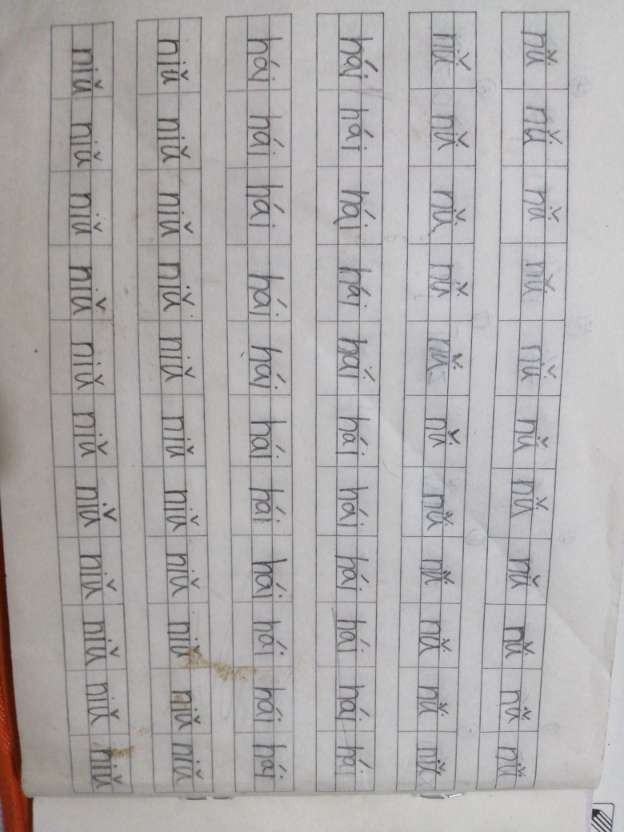 nǚ nǚ nǚ nǚ nǚ nǚ nǚ nǚ nǚ nǚ nǚ
nǚ nǚ nǚ nǚ nǚ nǚ nǚ nǚ nǚ nǚ nǚ
hái hái hái hái hǎi hái hái hái hái hái hái
hái hái hái hái hái hái hái hái hái hái hái
niǔ niǔ niǔ niǔ niǔ niǔ niǔ niǔ niǔ niǔ niǔ
niǔ niǔ niǔ niǔ niǔ niǔ niǔ niǔ niǔ niǔ niǔ